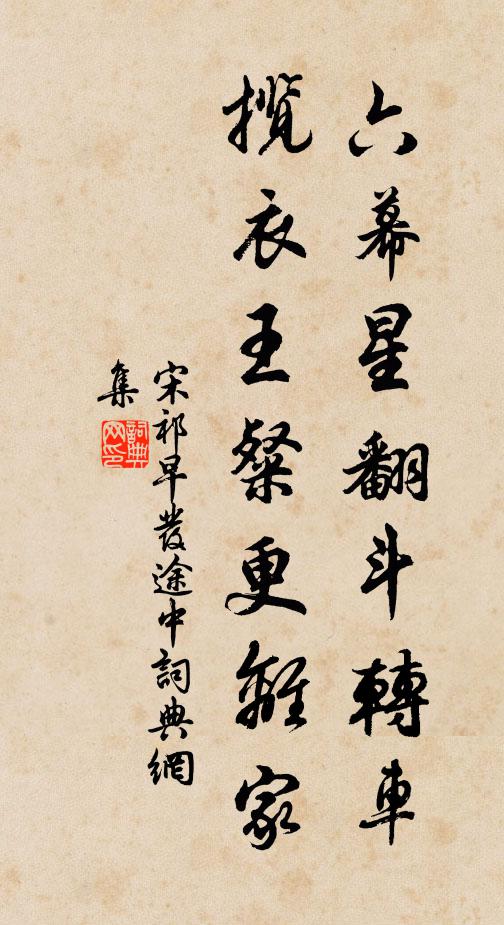 六幕星翻斗轉車
攬衣王粲更離家
宋祁早發途中詞典網
集
詞典
网印